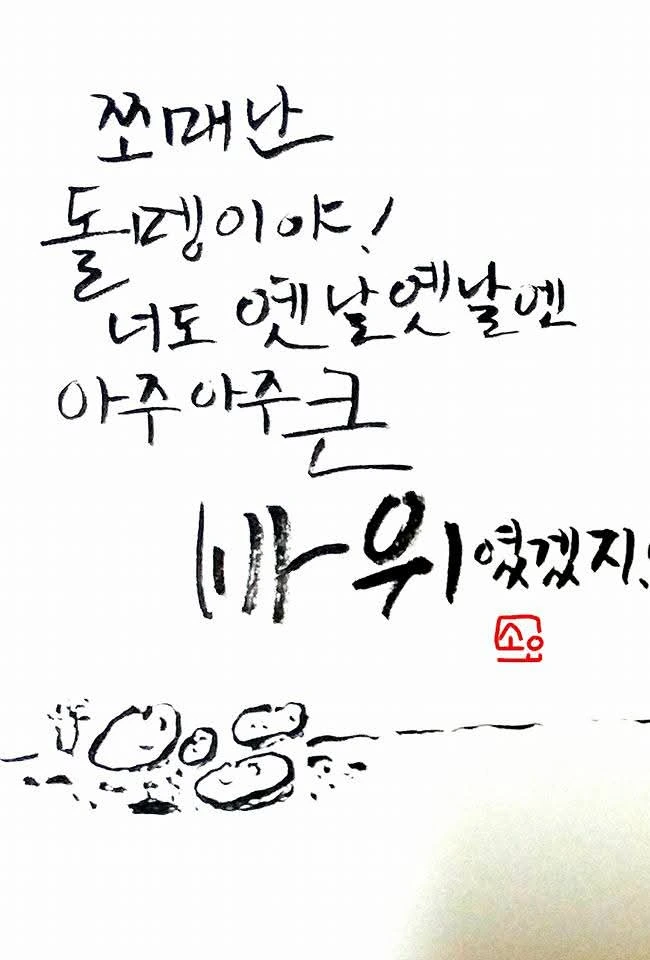 쪼매난
돌멩이야!
너도 옛날옛날엔
아주아주큰
바위였겠지!
소양